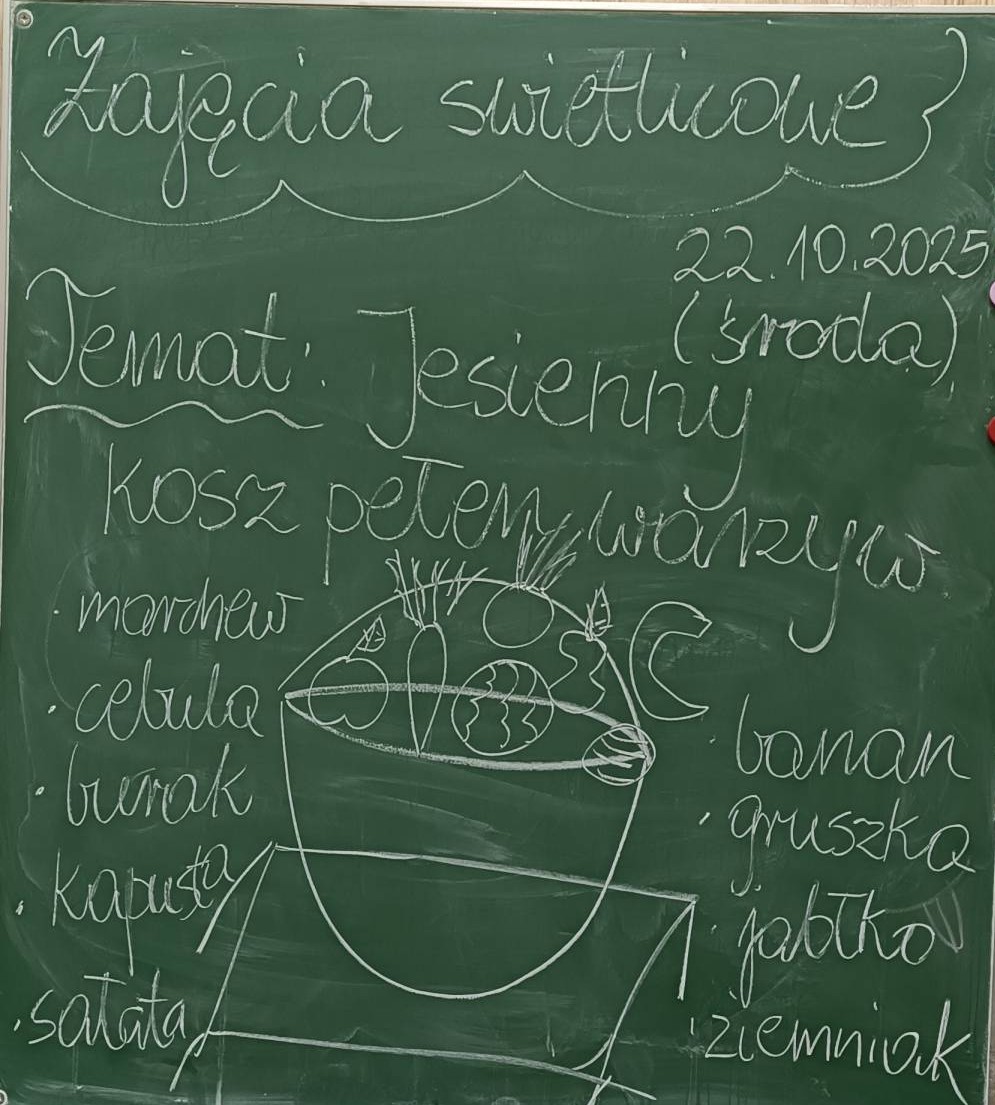 Zajęcia swietlicowe
22.10.2025
(środa)
Temat: Jesienny
kosz pełen warzyw
· marchew
· cebula
· burak
· kapusta
· sałata
· banan
· gruszka
· jabłko
· ziemniak